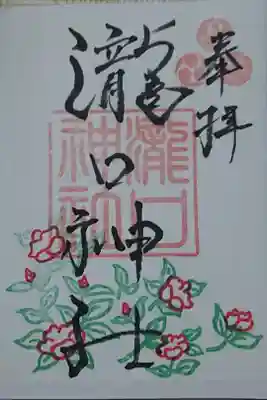 奉拝
瀧口神社
瀧口
神社